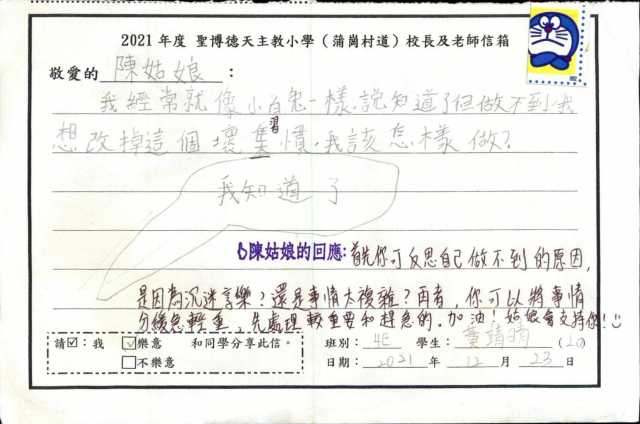 2021 年度 聖博德天主教小學（蒲崗村道）校長及老師信箱
敬愛的 陳姑娘：
我經常就像小白兔一樣說知道了但做不到我
想改掉這個壞習慣，我該怎樣做？
我知道了
陳姑娘的回應：首先你可反思自己做不到的原因，
是因為沉迷享樂？還是事情太複雜？再者，你可以將事情
分緩急輕重，先處理較重要和趕急的。加油！姑娘會支持你！
請☑：我 ☑樂意 和同學分享此信。 班別：4E 學生：（20）
□不樂意 日期：2021 年 12 月 23 日